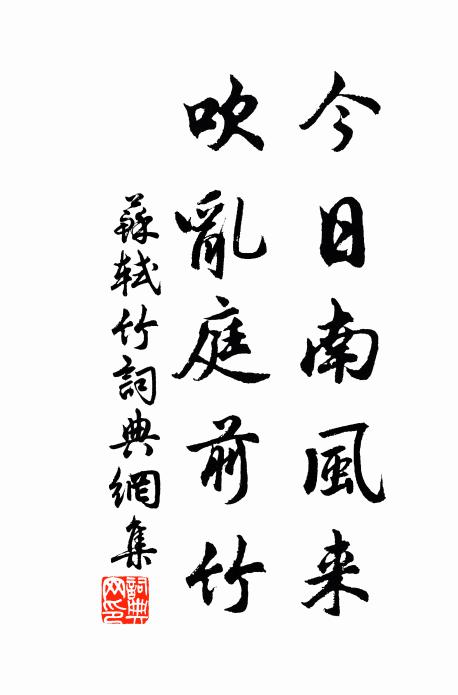 今日南風来
吹亂庭前竹
蘇軾竹詞典網集
詞典網印